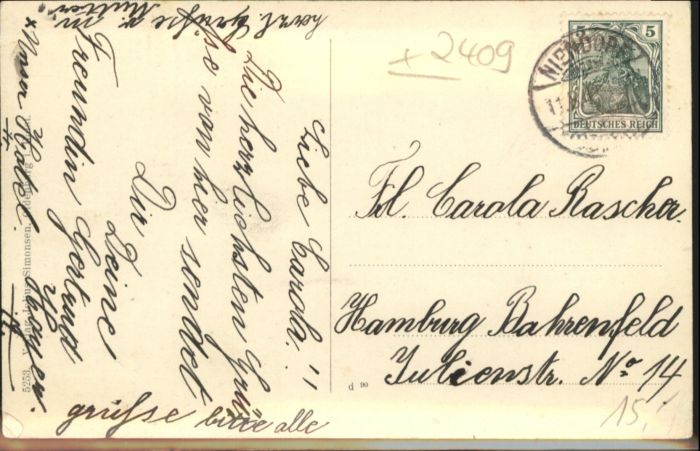 Liebe Carola!
Die herzlichsten Grü
sse von hier sendet
Dir Deine
Freundin Gertrud
grüsse bitte alle
herzl. Grüsse v.
Mutter
+ 2409
NIENDORF
5
DEUTSCHES REICH
Frl. Carola Rascher.
Hamburg Bahrenfeld
Julienstr. No 14
d 90
15,
5253 Simonsen, Oldenburg